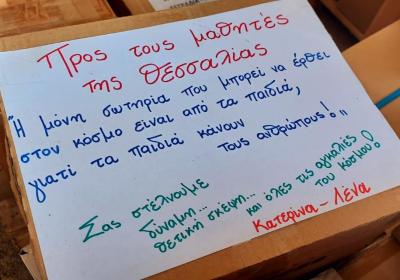 Προς τους μαθητές
της Θεσσαλίας
"Η μόνη σωτηρία που μπορεί να έρθει
στον κόσμο είναι από τα παιδιά,
γιατί τα παιδιά κάνουν
τους ανθρώπους!..."
Σας στέλνουμε
δύναμη...
θετική σκέψη...
και όλες τις αγκαλιές
του κόσμου!
Κατερίνα - Λένα